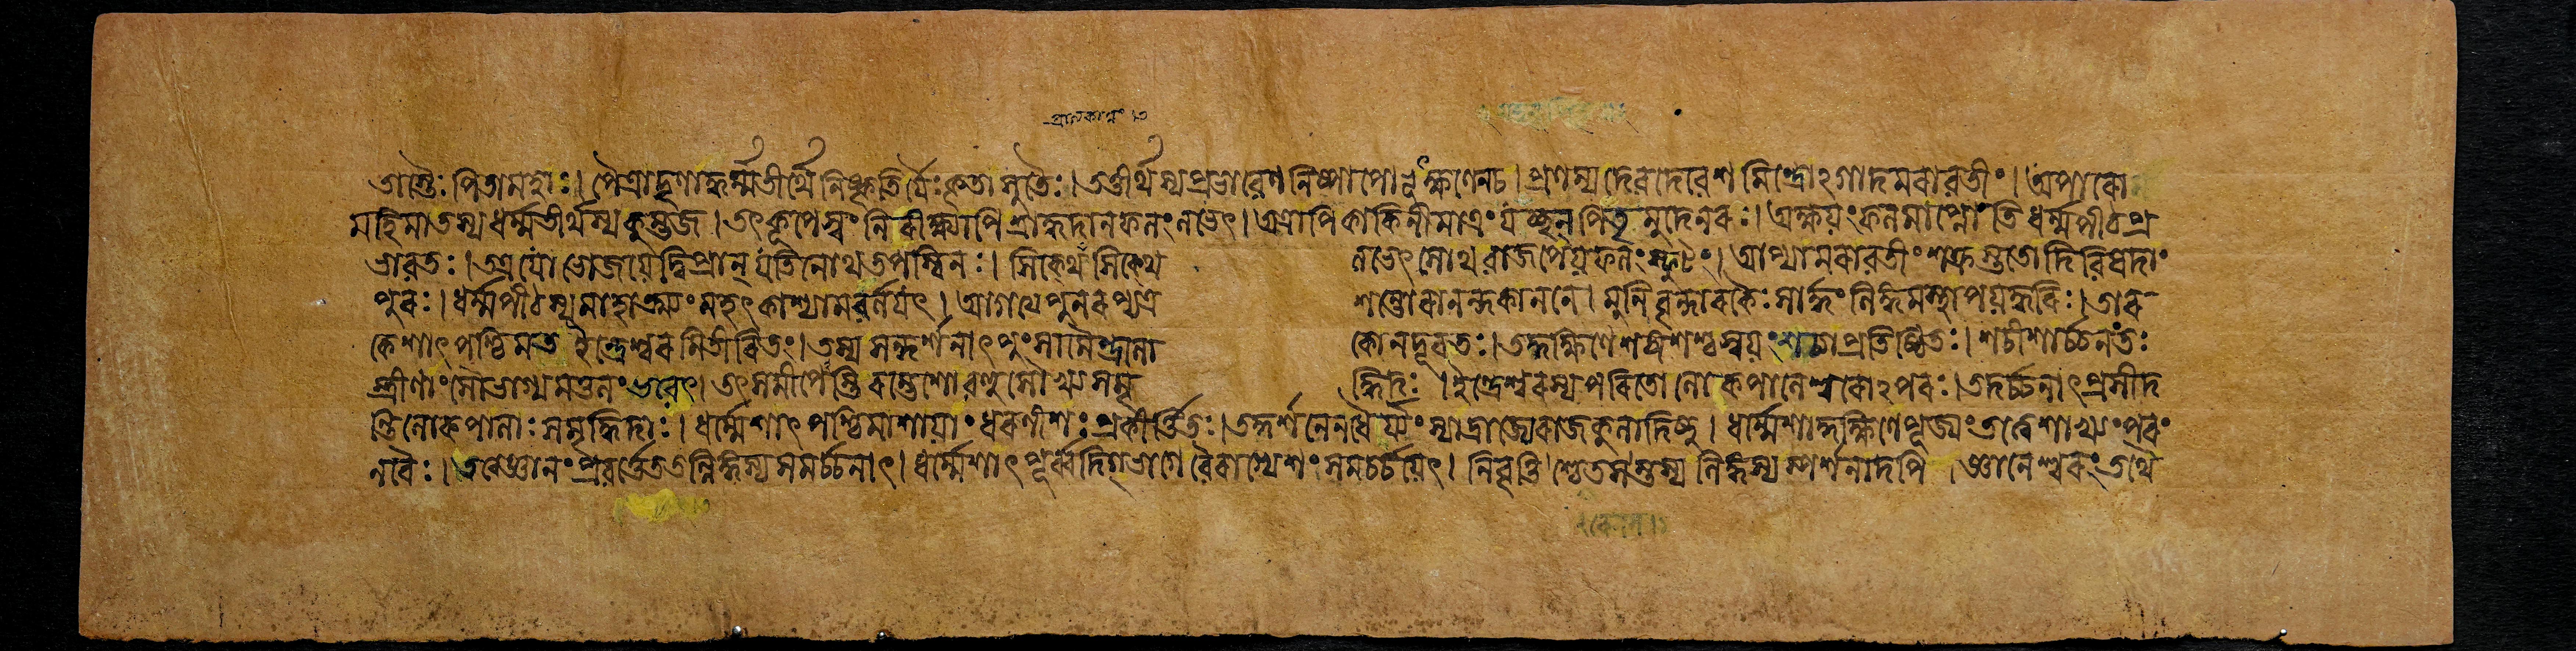 তাস্তৈঃ পিতামহাঃ। পৈত্রাদৃণাদ্ধর্ম্মতীর্থে নিষ্কৃতির্যৈঃ কৃতা সুতৈঃ। তত্তীর্থস্য প্রভাবেণ নিষ্পাপোভূৎক্ষণেন চ। প্রণম্য দেবদেবেশমিন্দ্রোঽগাদমরাবতীং। অপারো
মহিমা তস্য ধর্ম্মতীর্থস্য কুম্ভজ। তৎকূপে স্বং নিরীক্ষ্যাপি শ্রাদ্ধদানফলং লভেৎ। তত্রাপি কাকিনীমাত্রং যচ্ছন্ পিতৃমুদে নরঃ। অক্ষয়ং ফলমাপ্নোতি ধর্ম্মপীঠপ্র
ভাবতঃ। তত্র যো ভোজয়েদ্বিপ্রান্ যতিনোথ তপস্বিনঃ। সিক্থে সিক্থে লভেৎ সোথ বাজপেয়ফলং স্ফুটং। আপ্যামরাবতীং শক্রস্ততো দিবিষদাং
পুরঃ। ধর্ম্মপীঠস্য মাহাত্ম্যং মহৎ কাশ্যামবর্নয়ৎ। আগত্য পুনরপ্যত্র শম্ভোরানন্দকাননে। মুনিবৃন্দারকৈঃ সার্দ্ধং লিঙ্গমস্থাপয়দ্ধরিঃ। তার
কেশাৎ পশ্চিমত ইন্দ্রেশ্বরমিতীরিতং। তস্য সন্দর্শনাৎ পুংসামৈন্দ্রলো কো ন দূরতঃ। তদ্দক্ষিণে শচীশশ্চ স্বয়ং শচ্যা প্রতিষ্ঠিতঃ। শচীশার্চ্চনতঃ
স্ত্রীণাং সৌভাগ্যমতুলং ভবেৎ। তৎসমীপেস্তি রম্ভেশো বহুসৌখ্যসমৃ দ্ধিদঃ। ইন্দ্রেশ্বরস্য পরিতো লোকপালেশ্বরোঽপরঃ। তদর্চ্চনাৎ প্রসীদ
ন্তি লোকপালাঃ সমৃদ্ধিদাঃ। ধর্ম্মেশাৎ পশ্চিমাশায়াং ধরণীশঃ প্রকীর্ত্তিতঃ। তদ্দর্শনেন ধৈর্য্যং স্যাদ্রাজ্যে রাজকুলাদিষু। ধর্ম্মেশাদ্দক্ষিণে পূজ্যং তত্ত্বেশাখ্যং পরং
নরৈঃ। তত্ত্বজ্ঞানং প্রবর্ত্তেত তল্লিঙ্গস্য সমর্চ্চনাৎ। ধর্ম্মেশাৎ পূর্ব্বদিগ্ভাগে বৈরাগ্যেশং সমর্চ্চয়েৎ। নিবৃত্তিশ্চেতসস্তস্য লিঙ্গস্য স্পর্শনাদপি। জ্ঞানেশ্বরং তথৈ